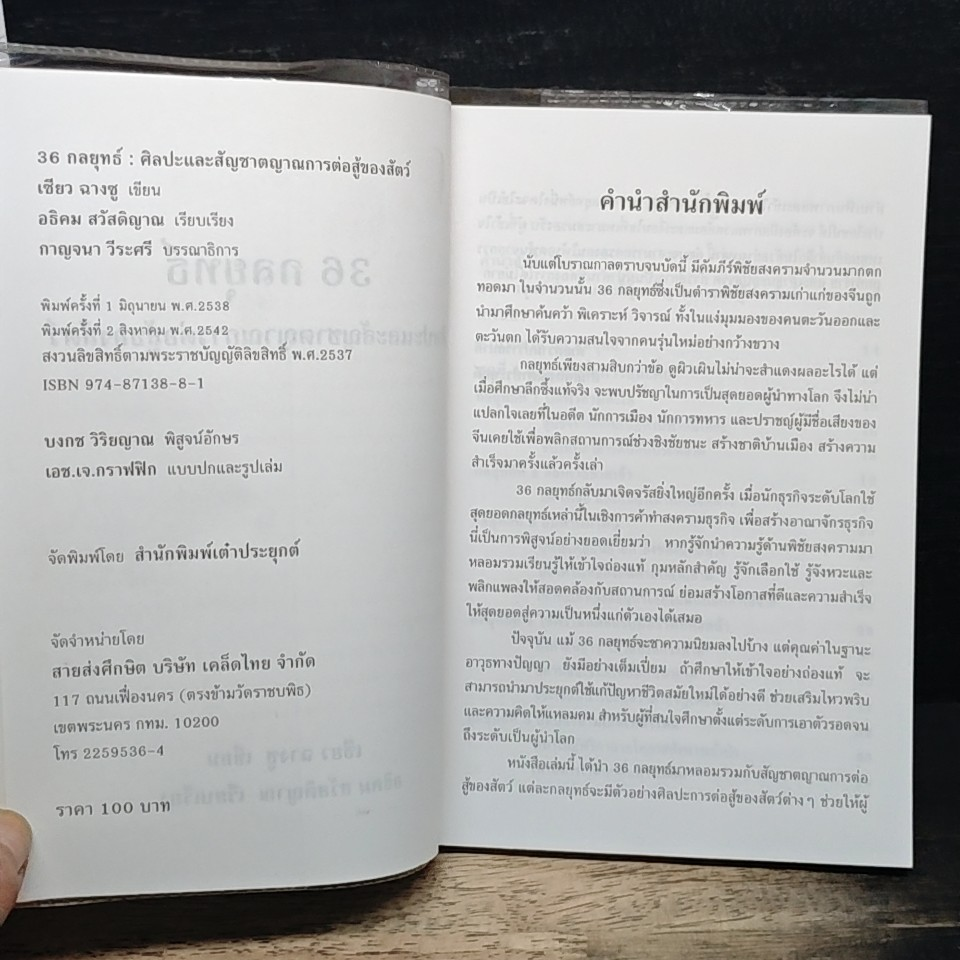 36 กลยุทธ์ : ศิลปะและสัญชาตญาณการต่อสู้ของสัตว์
เซียว ฉางซู เขียน
อธิคม สวัสดิญาณ เรียบเรียง
กาญจนา วีระศรี บรรณาธิการ
พิมพ์ครั้งที่ 1 มิถุนายน พ.ศ.2538
พิมพ์ครั้งที่ 2 สิงหาคม พ.ศ.2542
สงวนลิขสิทธิ์ตามพระราชบัญญัติลิขสิทธิ์ พ.ศ.2537
ISBN 974-87138-8-1
บงกช วิริยญาณ พิสูจน์อักษร
เอช.เจ.กราฟฟิก แบบปกและรูปเล่ม
จัดพิมพ์โดย สำนักพิมพ์เต๋าประยุกต์
จัดจำหน่ายโดย
สายส่งศึกษิต บริษัท เคล็ดไทย จำกัด
117 ถนนเฟื่องนคร (ตรงข้ามวัดราชบพิธ)
เขตพระนคร กทม. 10200
โทร 2259536-4
ราคา 100 บาท
คำนำสำนักพิมพ์
นับแต่โบราณกาลตราบจนบัดนี้ มีคัมภีร์พิชัยสงครามจำนวนมากตก
ทอดมา ในจำนวนนั้น 36 กลยุทธ์ซึ่งเป็นตำราพิชัยสงครามเก่าแก่ของจีนถูก
นำมาศึกษาค้นคว้า พิเคราะห์ วิจารณ์ ทั้งในแง่มุมมองของคนตะวันออกและ
ตะวันตก ได้รับความสนใจจากคนรุ่นใหม่อย่างกว้างขวาง
กลยุทธ์เพียงสามสิบกว่าข้อ ดูผิวเผินไม่น่าจะสำแดงผลอะไรได้ แต่
เมื่อศึกษาลึกซึ้งแท้จริง จะพบปรัชญาในการเป็นสุดยอดผู้นำทางโลก จึงไม่น่า
แปลกใจเลยที่ในอดีต นักการเมือง นักการทหาร และปราชญ์ผู้มีชื่อเสียงของ
จีนเคยใช้เพื่อพลิกสถานการณ์ช่วงชิงชัยชนะ สร้างชาติบ้านเมือง สร้างความ
สำเร็จมาครั้งแล้วครั้งเล่า
36 กลยุทธ์กลับมาเจิดจรัสยิ่งใหญ่อีกครั้ง เมื่อนักธุรกิจระดับโลกใช้
สุดยอดกลยุทธ์เหล่านี้ในเชิงการค้าทำสงครามธุรกิจ เพื่อสร้างอาณาจักรธุรกิจ
นี่เป็นการพิสูจน์อย่างยอดเยี่ยมว่า หากรู้จักนำความรู้ด้านพิชัยสงครามมา
หลอมรวมเรียนรู้ให้เข้าใจถ่องแท้ กุมหลักสำคัญ รู้จักเลือกใช้ รู้จังหวะและ
พลิกแพลงให้สอดคล้องกับสถานการณ์ ย่อมสร้างโอกาสที่ดีและความสำเร็จ
ให้สุดยอดสู่ความเป็นหนึ่งแก่ตัวเองได้เสมอ
ปัจจุบัน แม้ 36 กลยุทธ์จะซาความนิยมลงไปบ้าง แต่คุณค่าในฐานะ
อาวุธทางปัญญา ยังมีอย่างเต็มเปี่ยม ถ้าศึกษาให้เข้าใจอย่างถ่องแท้ จะ
สามารถนำมาประยุกต์ใช้แก้ปัญหาชีวิตสมัยใหม่ได้อย่างดี ช่วยเสริมไหวพริบ
และความคิดให้แหลมคม สำหรับผู้ที่สนใจศึกษาตั้งแต่ระดับการเอาตัวรอดจน
ถึงระดับเป็นผู้นำโลก
หนังสือเล่มนี้ ได้นำ 36 กลยุทธ์มาหลอมรวมกับสัญชาตญาณการต่อ
สู้ของสัตว์ แต่ละกลยุทธ์จะมีตัวอย่างศิลปะการต่อสู้ของสัตว์ต่างๆ ช่วยให้ผู้